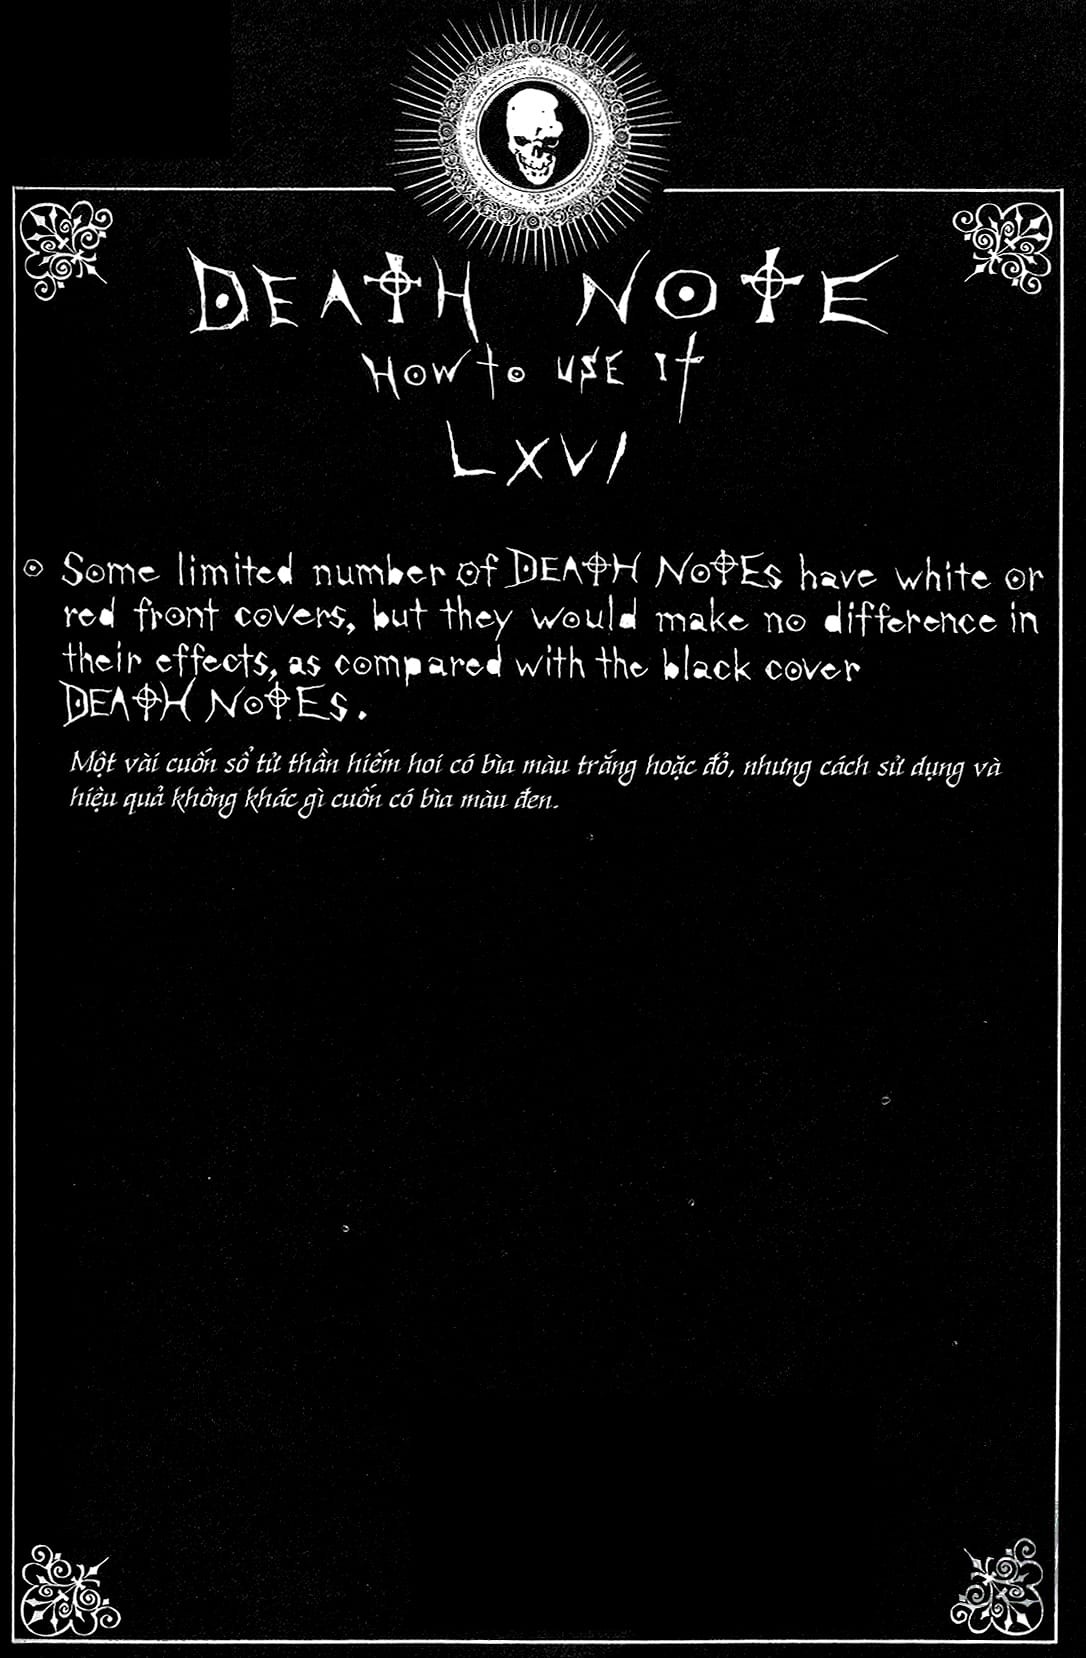 DEATH NOTE
How to use it
LXVI
Some limited number of DEATH NOTEs have white or
red front covers, but they would make no difference in
their effects, as compared with the black cover
DEATH NOTEs.
Một vài cuốn sổ tử thần hiếm hoi có bìa màu trắng hoặc đỏ, nhưng cách sử dụng và
hiệu quả không khác gì cuốn có bìa màu đen.